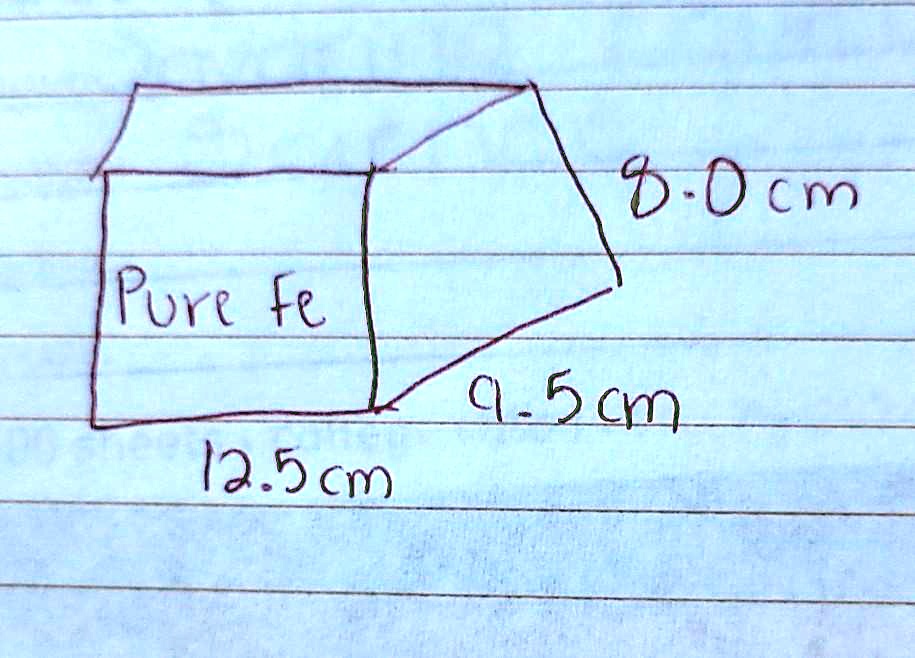 8.0 cm
Pure Fe
9.5 cm
12.5 cm